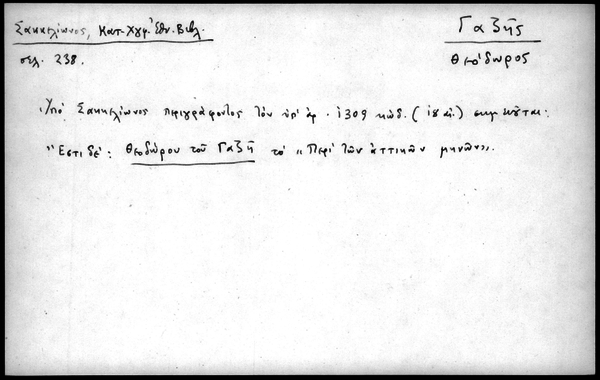 Σακκελίωνος, Κατ. Χγφ. Ἐθν. Βιβλ.
σελ. 238.
Γαζῆς
Θεόδωρος
Ὑπό Σακκελίωνος περιγράφοντος τόν ὑπ' ἀρ. 1309 κώδ. ( αἰ.) σημειοῦται:
"Ἔστι δέ: Θεοδώρου τοῦ Γαζῆ τό «Περί τῶν ἀττικῶν μηνῶν».